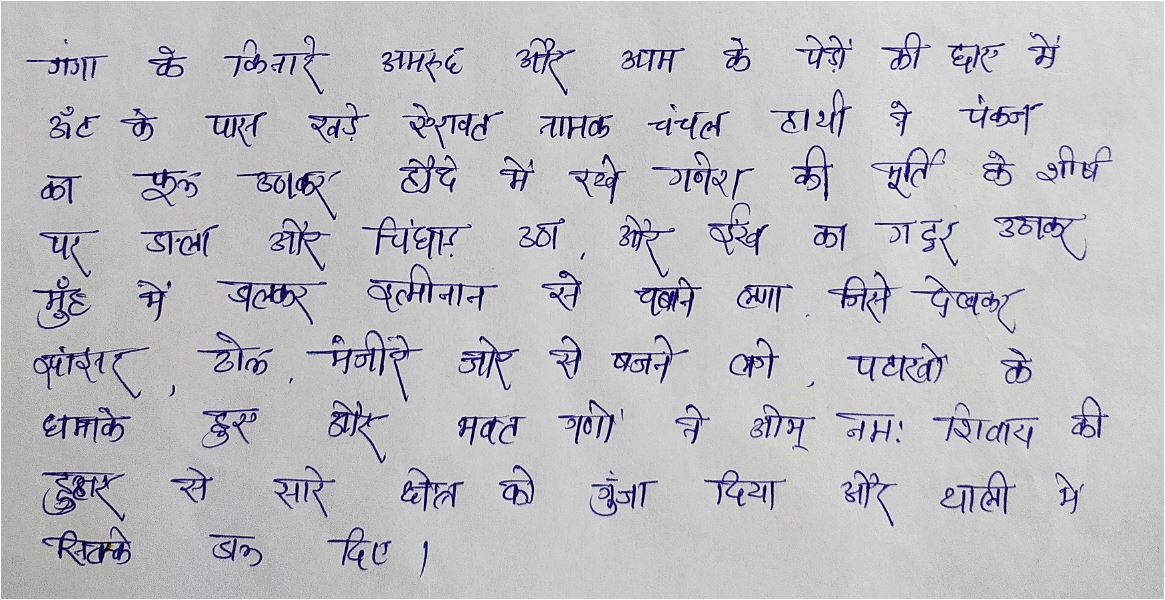 गंगा के किनारे अमरुद और आम के पेड़ों की छाए में
ऊँट के पास खड़े ऐरावत नामक चंचल हाथी ने पंकज
का फूल उठाकर हौदे में रखे गणेश की मूर्ति के शीर्ष
पर डाला और चिंघाड़ उठा, और ईख का गट्ठर उठाकर
मुँह में डालकर इत्मीनान से चबाने लगा, जिसे देखकर
झांझर, ढोल, मंजीरे जोर से बजने लगे, पटाखों के
धमाके हुए और भक्त गणों ने ओम् नमः शिवाय की
हुंकार से सारे क्षेत्र को गुंजा दिया और थाली में
सिक्के डाल दिए।